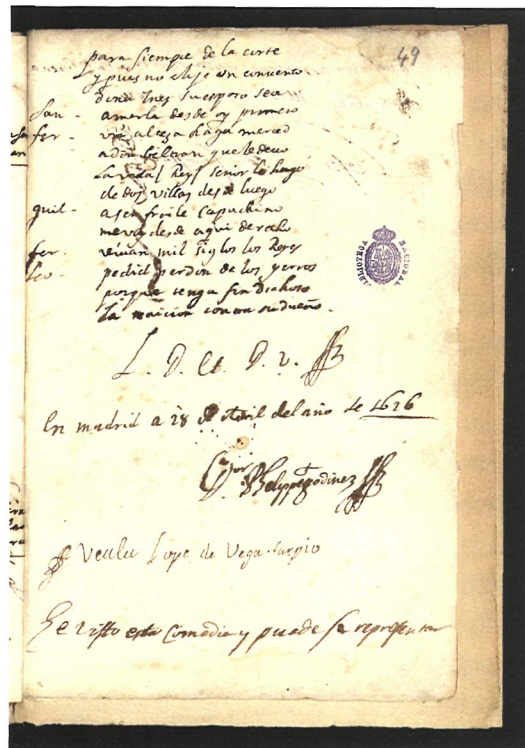 49
para siempre de la corte
y pues no elije un convento
doña Ines su esposo sea
san - amarla desde oy prometo
fer - vra alteza haga merced
a don beltran que le devo
la vida / Rey / señor le hago
de dos villas desde luego
guil - a ser fraile capuchino
me voy desde aqui derecho
fer - vivan mil siglos los Reyes
leo - pedid perdon de los yerros
porque tenga fin dichoso
la traicion contra su dueño.
L. D. et D. V.
En madrid a 28 de Abril del año de 1626
Phelippe Godinez
BIBLIOTECA NACIONAL
Veala Lope de Vega Carpio
He visto esta Comedia y puede se representar